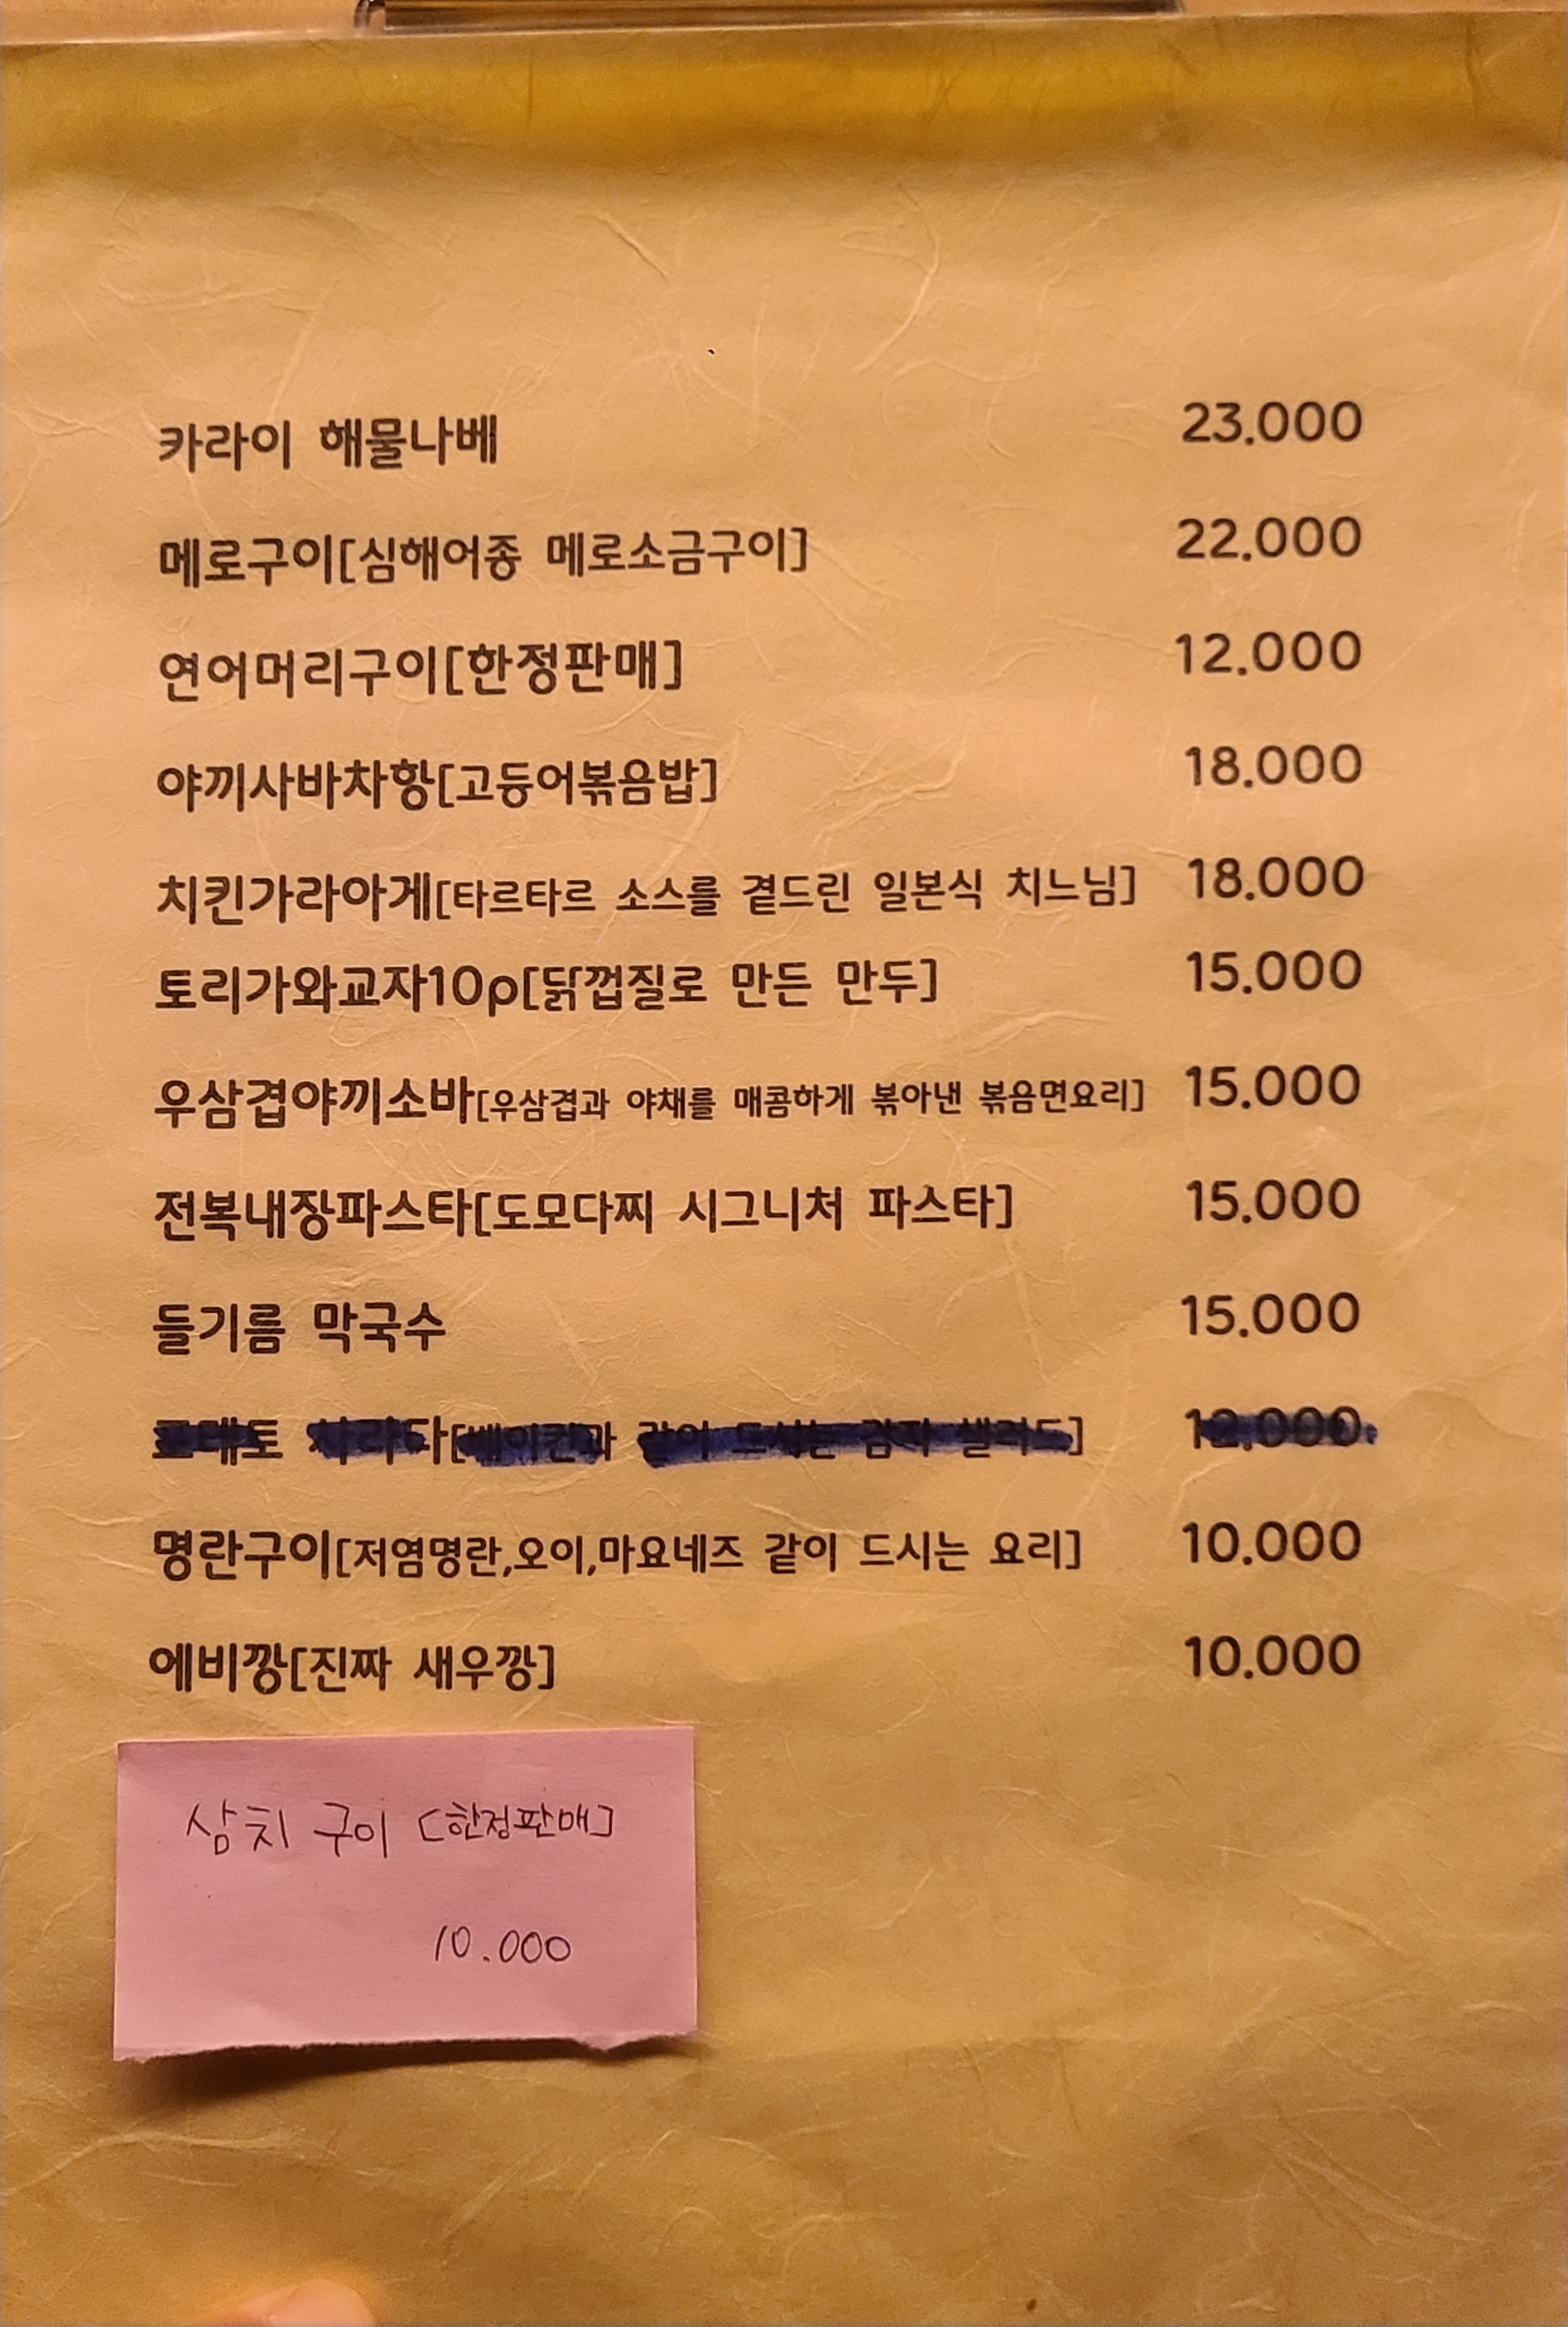 카라이 해물나베 23.000
메로구이[심해어종 메로소금구이] 22.000
연어머리구이[한정판매] 12.000
야끼사바차항[고등어볶음밥] 18.000
치킨가라아게[타르타르 소스를 곁드린 일본식 치느님] 18.000
토리가와교자10p[닭껍질로 만든 만두] 15.000
우삼겹야끼소바[우삼겹과 야채를 매콤하게 볶아낸 볶음면요리] 15.000
전복내장파스타[도모다찌 시그니처 파스타] 15.000
들기름 막국수 15.000
명란구이[저염명란,오이,마요네즈 같이 드시는 요리] 10.000
에비깡[진짜 새우깡] 10.000
삼치 구이 [한정판매]
10.000